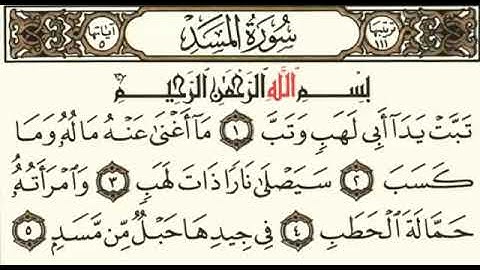 ترتيبها ١١١ سُورَةُ المَسَدِ آياتها ٥
بِسْمِ اللَّهِ الرَّحْمَٰنِ الرَّحِيمِ
تَبَّتْ يَدَآ أَبِي لَهَبٍ وَتَبَّ ١ مَآ أَغْنَىٰ عَنْهُ مَالُهُۥ وَمَا
كَسَبَ ٢ سَيَصْلَىٰ نَارًا ذَاتَ لَهَبٍ ٣ وَٱمْرَأَتُهُۥ
حَمَّالَةَ ٱلْحَطَبِ ٤ فِي جِيدِهَا حَبْلٌ مِّن مَّسَدٍۭ ٥